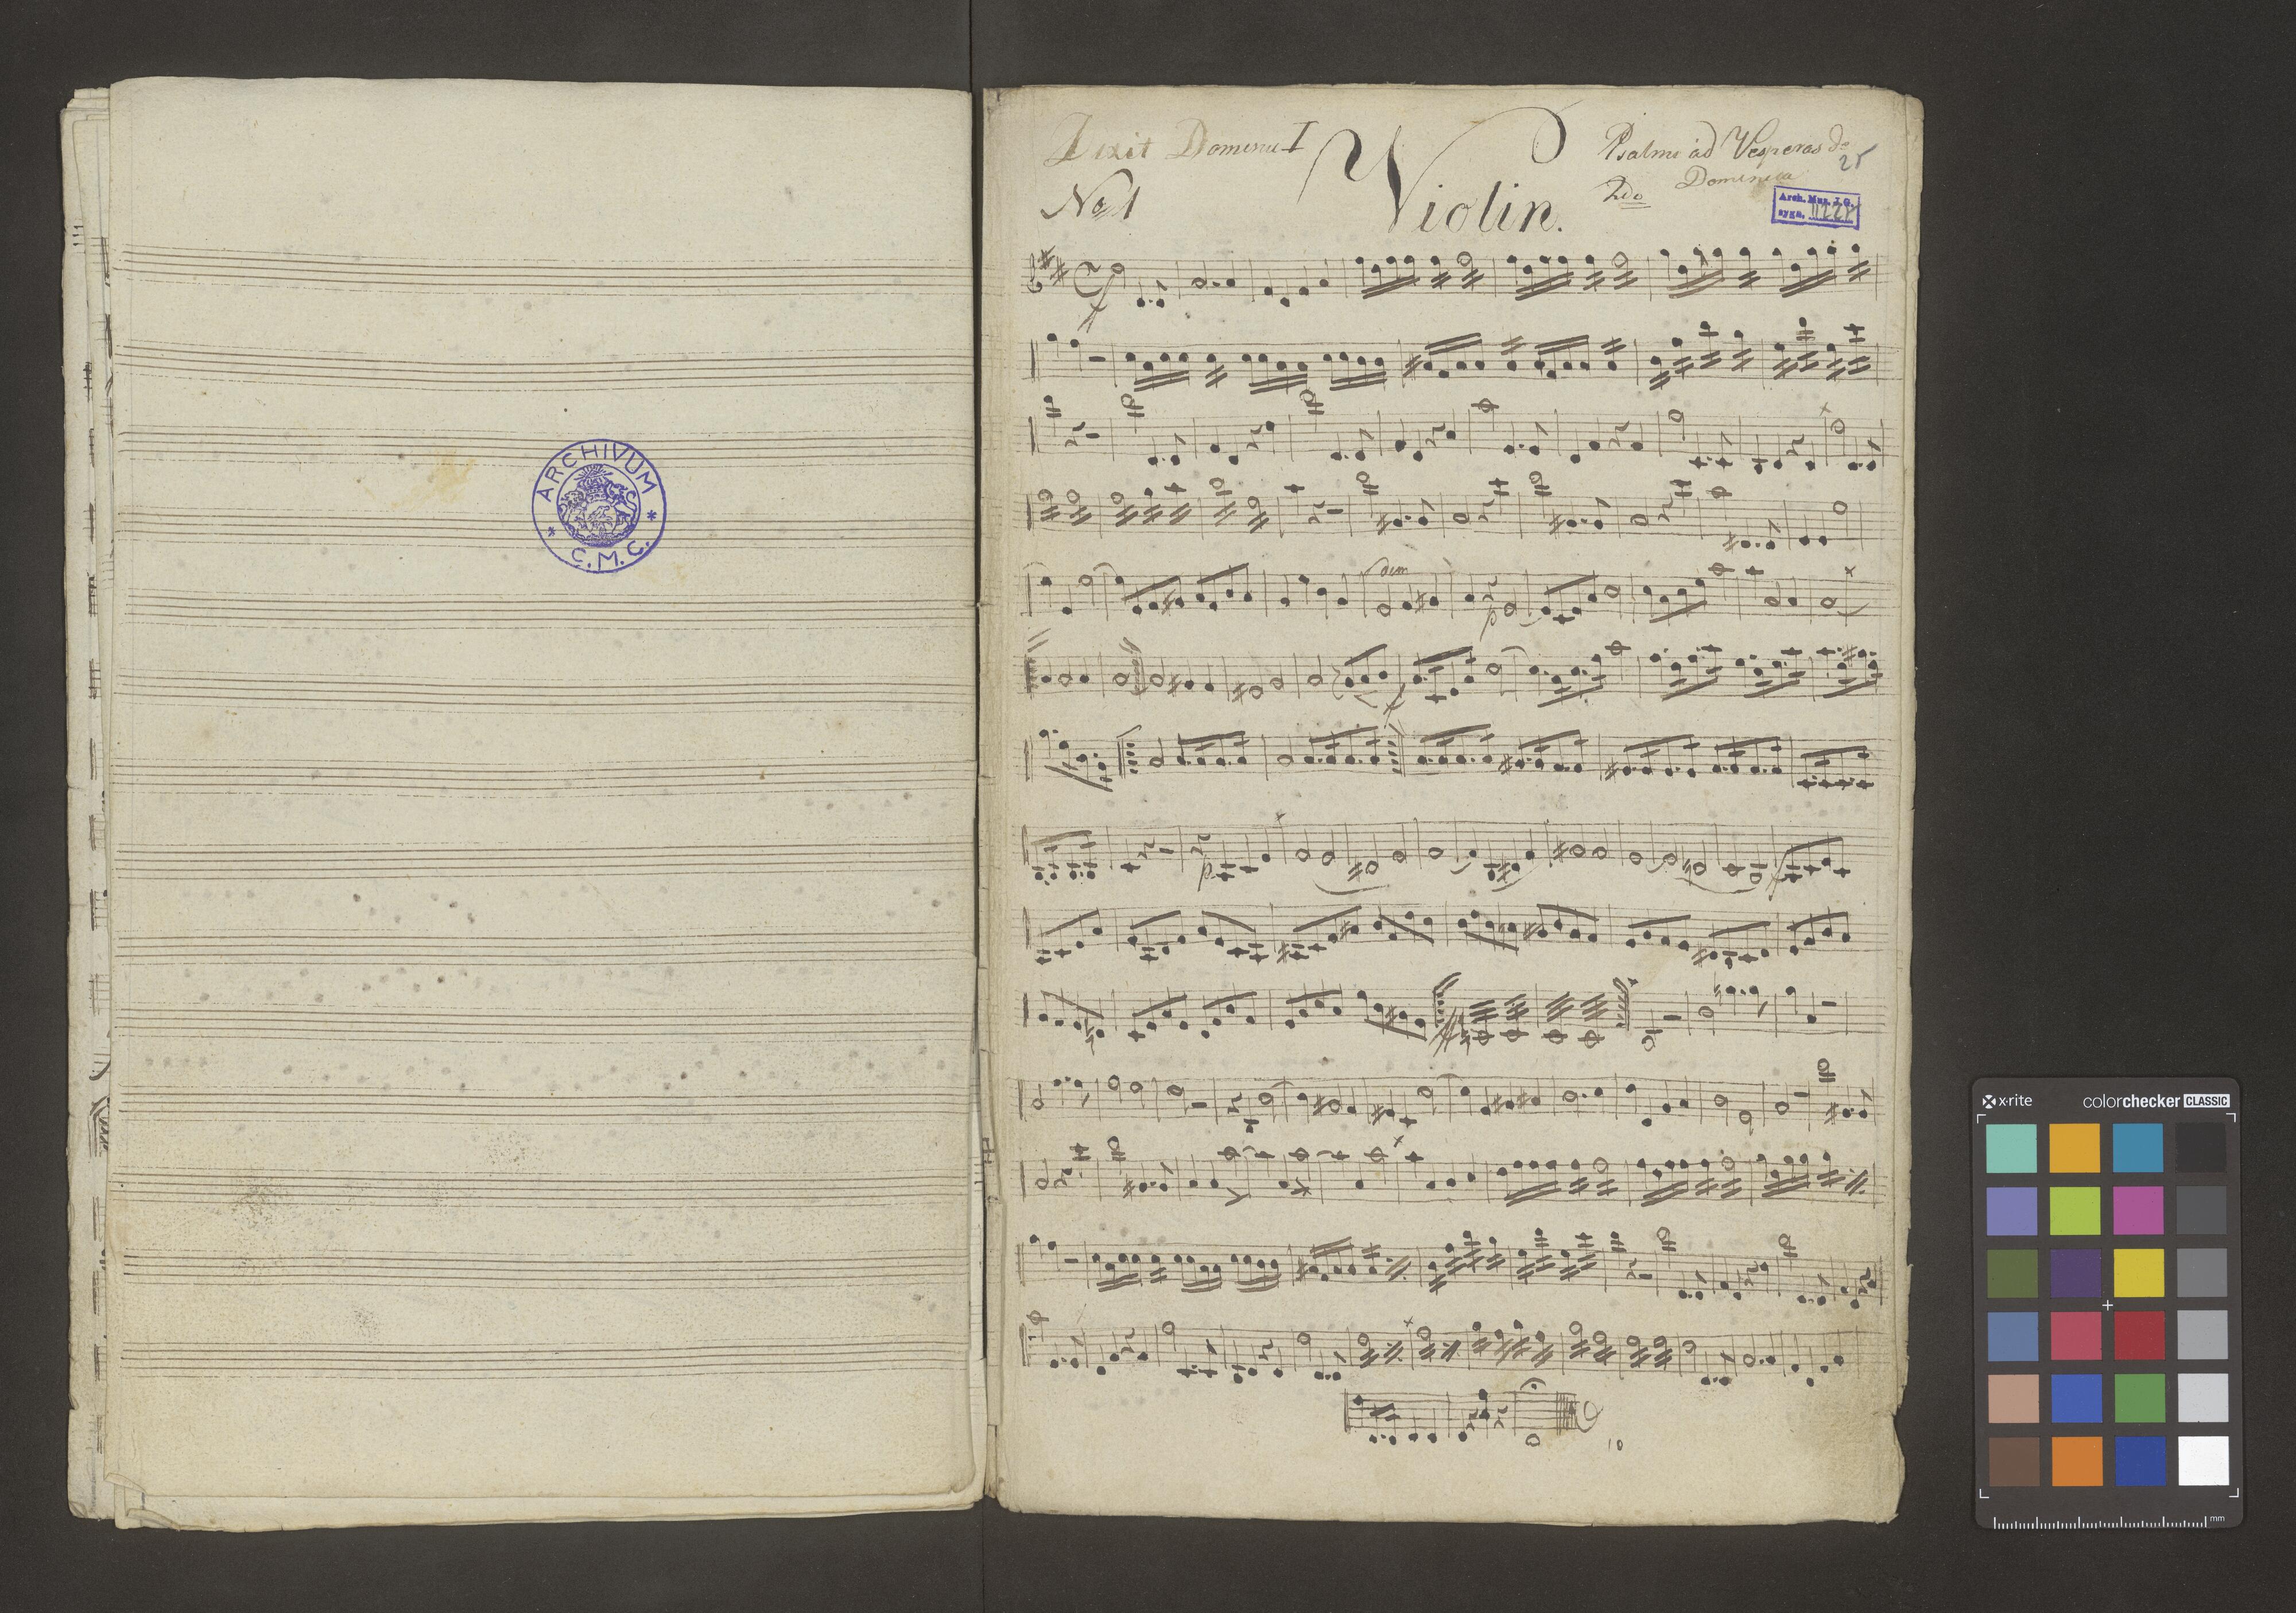 ARCHIVUM
* C.M.C. *
Dixit Dominu I
Violin.
Psalmi ad Vesperas de
25
Dominica
No 1
2do
Arch. Muz. J. G.
sygn. II 22
dim
p
p
10
x-rite
colorchecker CLASSIC
mm